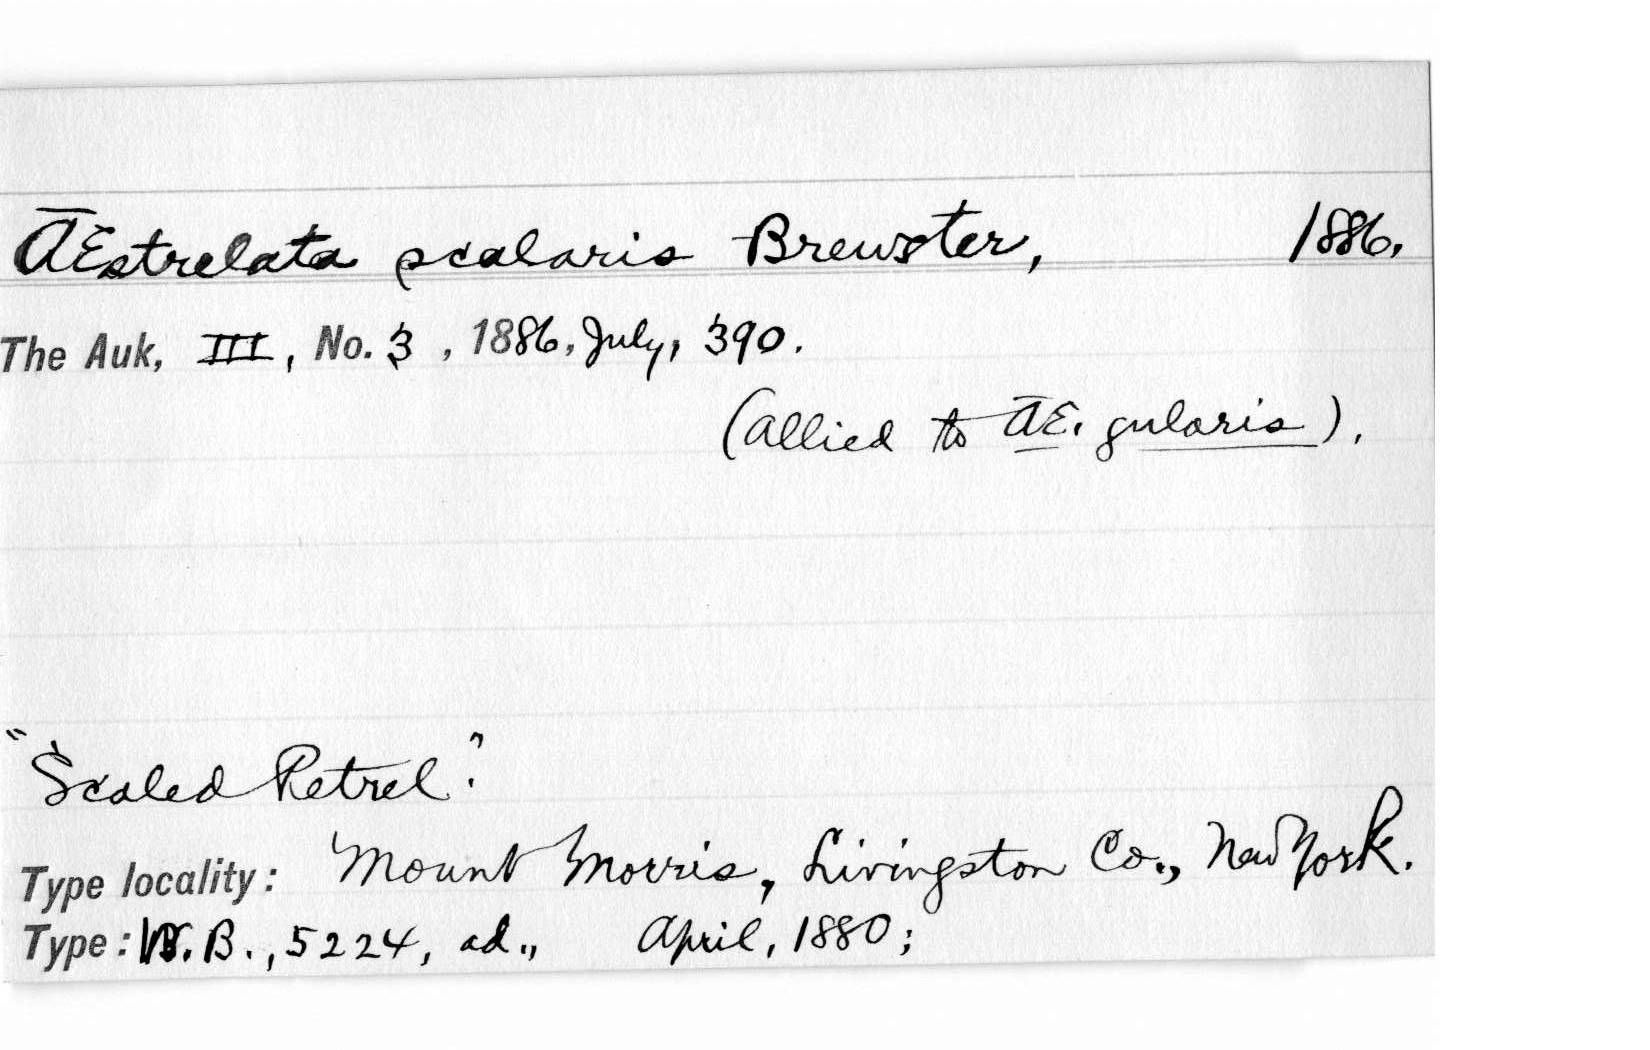 AEstrelata scalaris Brewster, 1886.
The Auk, III, No. 3, 1886, July, 390.
(Allied to AE. gularis).
"Scaled Petrel".
Type locality: Mount Morris, Livingston Co., New York.
Type: W.B., 5224, ad., April, 1880;